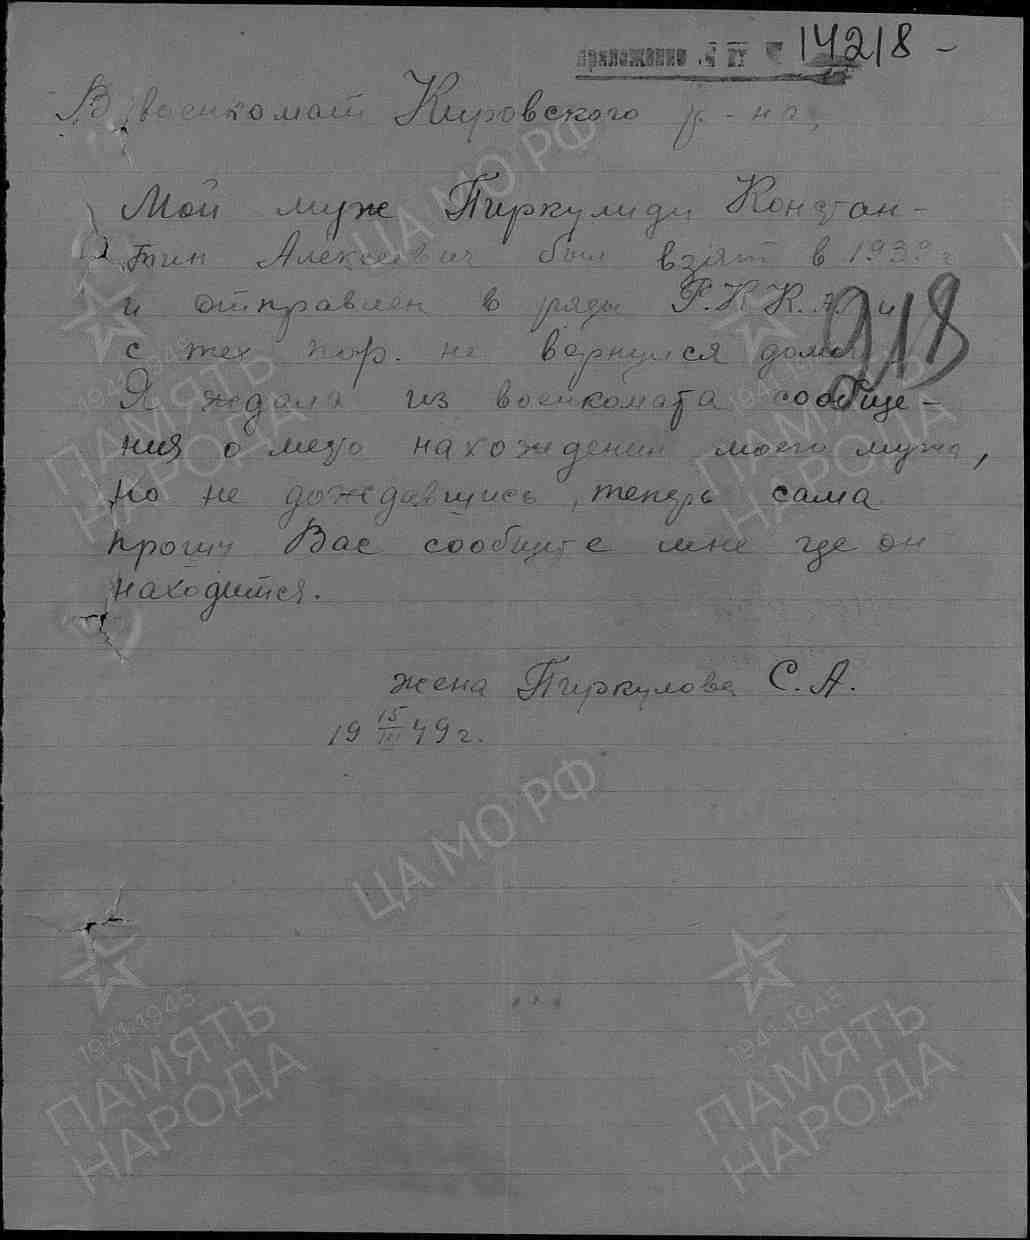 приложение 14218 -
В военкомат Кировского р-на,
Мой муж Пиркулиди Констан-
тин Алексеевич был взят в 1939 г
и отправлен в ряды Р.К.К.А. и
с тех пор. не вернулся домой
918
Я ждала из военкомата сообще-
ния о место нахождении моего мужа,
но не дождавшись, теперь сама
прошу Вас сообщите мне где он
находится.
жена Пиркулова С. А.
19 15/III 49 г.
ЦА МО РФ
1941-1945
ПАМЯТЬ
НАРОДА
1941-1945
ПАМЯТЬ
НАРОДА
ЦА МО РФ
1941-1945
ПАМЯТЬ
НАРОДА
1941-1945
ПАМЯТЬ
НАРОДА